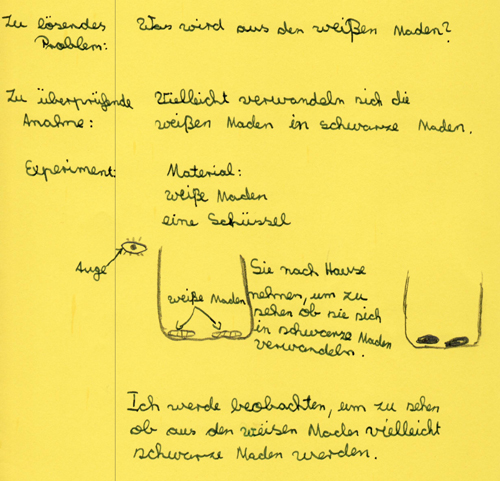 Zu lösendes Was wird aus den weißen Maden?
Problem:
Zu überprüfende Vielleicht verwandeln sich die
Anahme: weißen Maden in schwarze Maden.
Experiment: Material:
weiße Maden
eine Schüssel
Auge
weiße Maden
Sie nach Hause
nehmen, um zu
sehen ob sie sich
in schwarze Maden
verwandeln.
Ich werde beobachten, um zu sehen
ob aus den weisen Maden vielleicht
schwarze Maden werden.